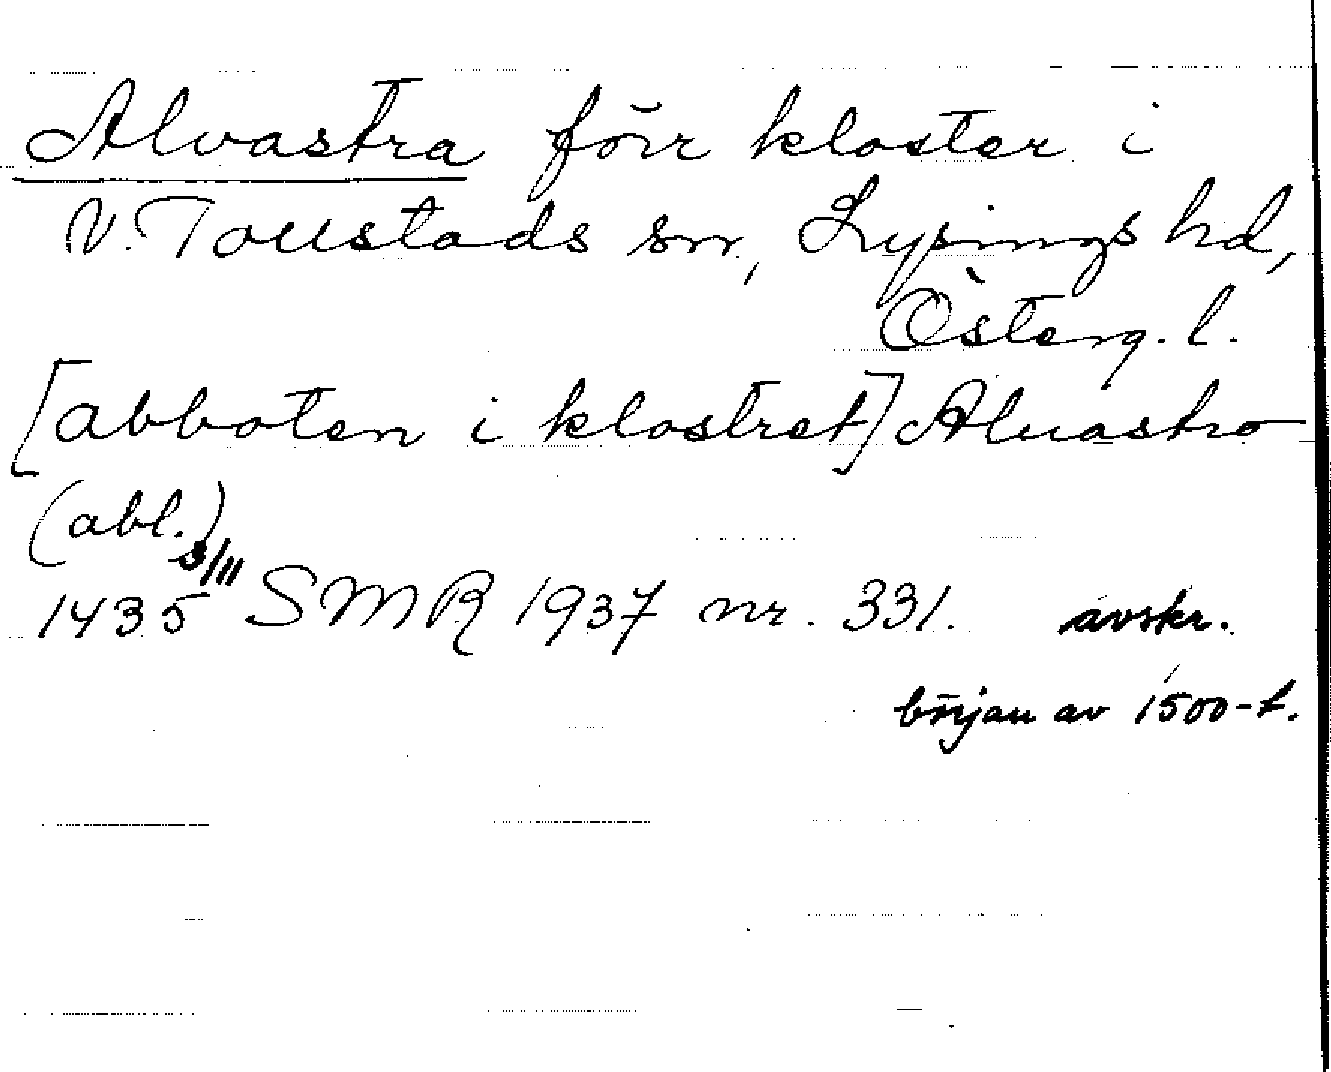 Alvastra förr kloster i
V. Tollstads sn, Lysings hd,
Österg. l.
[abboten i klostret] Aluastro
(abl.)
1435 3/11 SMR 1937 nr. 331. avskr.
början av 1500-t.